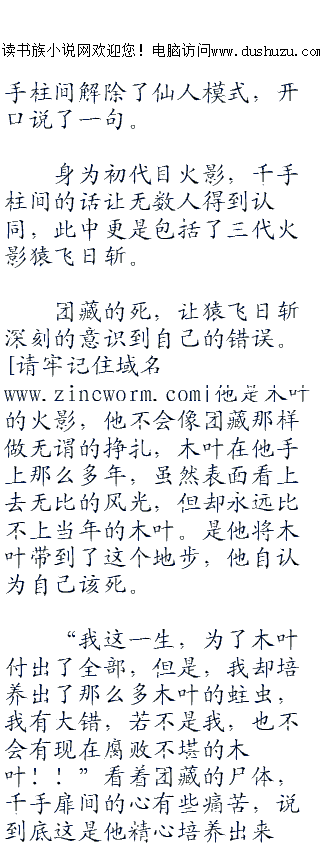 读书族小说网欢迎您！电脑访问www.dushuzu.com
手柱间解除了仙人模式，开
口说了一句。
身为初代目火影，千手
柱间的话让无数人得到认
同，此中更是包括了三代火
影猿飞日斩。
团藏的死，让猿飞日斩
深刻的意识到自己的错误。
[请牢记住域名
www.zincworm.com|他是木叶
的火影，他不会像团藏那样
做无谓的挣扎，木叶在他手
上那么多年，虽然表面看上
去无比的风光，但却永远比
不上当年的木叶。是他将木
叶带到了这个地步，他自认
为自己该死。
“我这一生，为了木叶
付出了全部，但是，我却培
养出了那么多木叶的蛀虫，
我有大错，若不是我，也不
会有现在腐败不堪的木
叶！！”看着团藏的尸体，
千手扉间的心有些痛苦，说
到底这是他精心培养出来